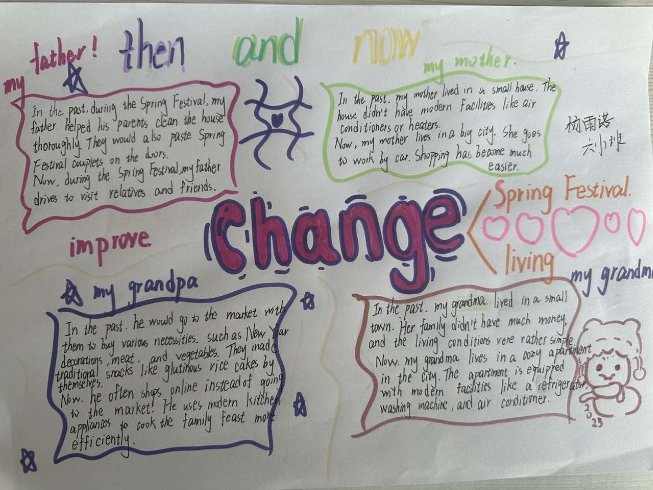 then and now
my father!
In the past, during the Spring Festival, my
father helped his parents clean the house
thoroughly. They would also paste Spring
Festival couplets on the doors.
Now, during the Spring Festival, my father
drives to visit relatives and friends.
my mother.
In the past, my mother lived in a small house. The
house didn't have modern facilities like air
conditioners or heaters.
Now, my mother lives in a big city. She goes
to work by car. Shopping has become much
easier.
杨雨诺
improve
Change
Spring Festival.
living
my grandpa
In the past, he would go to the market with
them to buy various necessities, such as New Year
decorations, meat, and vegetables. They made
traditional snacks like glutinous rice cakes by
themselves.
Now, he often shops online instead of going
to the market! He uses modern kitchen
appliances to cook the family feast more
efficiently.
my grandma
In the past, my grandma lived in a small
town. Her family didn't have much money
and the living conditions were rather simple
Now, my grandma lives in a cozy apartment
in the city. The apartment is equipped
with modern facilities like a refrigerator,
washing machine, and air conditioner.
2025